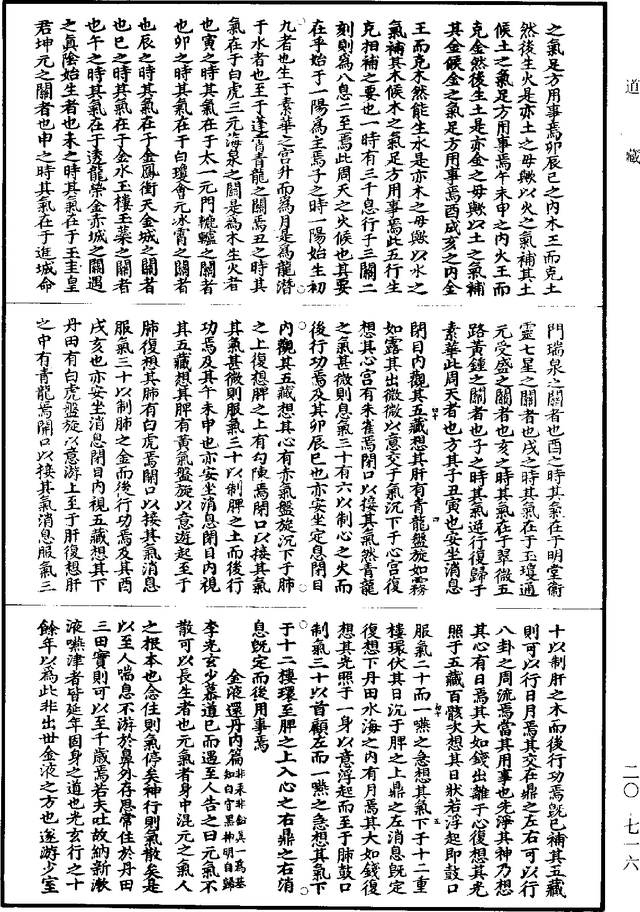 之氣足方用事焉卯辰巳之內木王而克土
然後生火是亦土之母歟以火之氣補其土
候土之氣足方用事焉午未申之內火王而
克金然後生土是亦金之母歟以土之氣補
其金候金之氣足方用事焉酉戌亥之內金
王而克木然能生水是亦木之母歟以水之
氣補其木候木之氣足方用事焉此五行生
克相補之要也一時有三千息行于三關二
刻則爲八息二至焉此周天之火候也其要
在乎始于一陽爲主焉子之時一陽始生初
九者也生于素華之宮升而爲月是爲龍潛
于水者也至于蓬宵青龍之關焉丑之時其
氣在于白虎三元海泉之關是爲木生火者
也寅之時其氣在于太一元門轆轤之關者
也卯之時其氣在于白瓊會元冰霄之關者
也辰之時其氣在于金鳳衝天金城之關者
也巳之時其氣在于金水玉樓玉蘂之關者
也午之時其氣在于透龍榮金赤城之關遇
之眞陰始生者也未之時其氣在于玉圭皇
君坤元之關者也申之時其氣在于逛城命
門瑞泉之關者也酉之時其氣在于明堂衝
靈七星之關者也戌之時其氣在于玉瓊通
元受盛之關者也亥之時其氣在于翠微五
路黃鍾之關者也子之時其氣逆行復歸于
素華此周天者也方其子丑寅也安坐消息
閉目內觀其五藏想其肝有青龍盤旋如霧
如露其出微微以意交于氣沉下于心宮復
想其心宮有朱雀焉開口以接其氣然青龍
之氣甚微則息氣三十有六以制心之火而
後行功焉及其卯辰巳也亦安坐定息閉目
內觀其五藏想其心有赤氣盤旋沉下于肺
之上復想脾之上有勾陳焉開口以接其氣
其氣甚微則服氣三十以制脾之土而後行
功焉及其午未申也亦安坐消息閉目內視
其五藏想其脾有黃氣盤旋以意遊起至于
肺復想其肺有白虎焉開口以接其氣消息
服氣三十以制肺之金而後行功焉及其酉
戌亥也亦安坐消息閉目內視五藏想其下
丹田有白虎盤旋以意游上至于肝復想肝
之中有青龍焉開口以接其氣消息服氣三
十以制肝之木而後行功焉旣已補其五藏
則可以行日月焉其交在鼎之左右可以行
八卦之周流焉當其用事也先淨其神乃想
其心有日焉其大如錢出離于心復想其光
照于五藏百骸次想其日狀若浮起即鼓口
服氣二十而一嚥之急想其氣下于十二重
樓環伏其日沉于脾之上鼎之左消息旣定
復想下丹田水海之內有月焉其大如錢復
想其光照于一身以意浮起而至于肺鼓口
制氣三十以首顧左而一嚥之急想其氣下
于十二樓環至脾之上入心之右鼎之右消
息旣定而後用事焉
金液還丹內篇 非汞非鉛眞一爲基 知白守黑神明自歸
李光玄少慕道已而遇至人告之曰元氣不
散可以長生者也元氣者身中混元之氣人
之根本也念住則氣停矣神行則氣散矣是
以至人喘息不游於鼻外存思常住於丹田
三田實則可以至千歲焉若夫吐故納新漱
液嚥津者皆延年固身之道也光玄行之十
餘年以爲此非出世金液之方也遂游少室
道藏
二〇·七一六